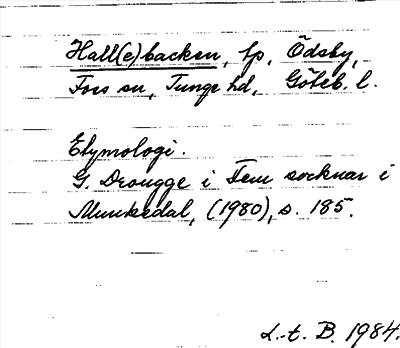 Hall(e)backen, lp, Ödsby,
Foss sn, Tunge hd, Göteb. l.
Etymologi.
G. Drougge i Fem socknar i
Munkedal, (1980), s. 185.
L.-t. B. 1984.